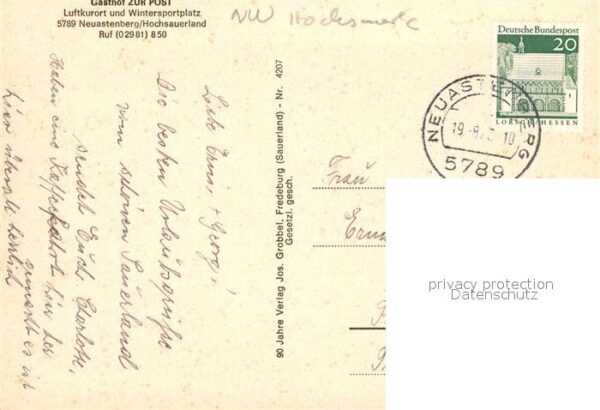 Gasthof ZUR POST
Luftkurort und Wintersportplatz
5789 Neuastenberg/Hochsauerland
Ruf (02981) 850
NW
Deutsche Bundespost
20
LORSCH/HESSEN
NEUASTENBERG
5789
Liebe Erna, + Georg!
Die besten Urlaubsgrüße
vom schönen Sauerland
sendet Euch Charlotte.
Haben eine Kaffeefahrt hier her
gemacht es ist
hier überall herrlich
90 Jahre Verlag Jos. Grobbel, Fredeburg (Sauerland) - Nr. 4207
Gesetzl. gesch.
Frau
privacy protection
Datenschutz